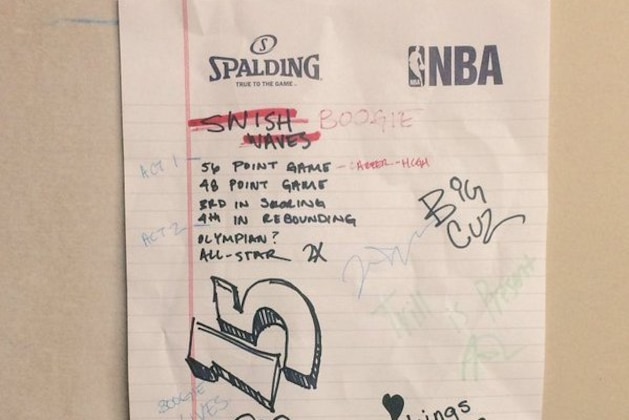 S
SPALDING
TRUE TO THE GAME
NBA
SWISH BOOGIE
WAVES
ACT 1
56 POINT GAME - CAREER-HIGH
48 POINT GAME
3RD IN SCORING
4TH IN REBOUNDING
ACT 2
OLYMPIAN?
ALL-STAR 2X
BIG
CUZ
15
BOOGIE
Kings